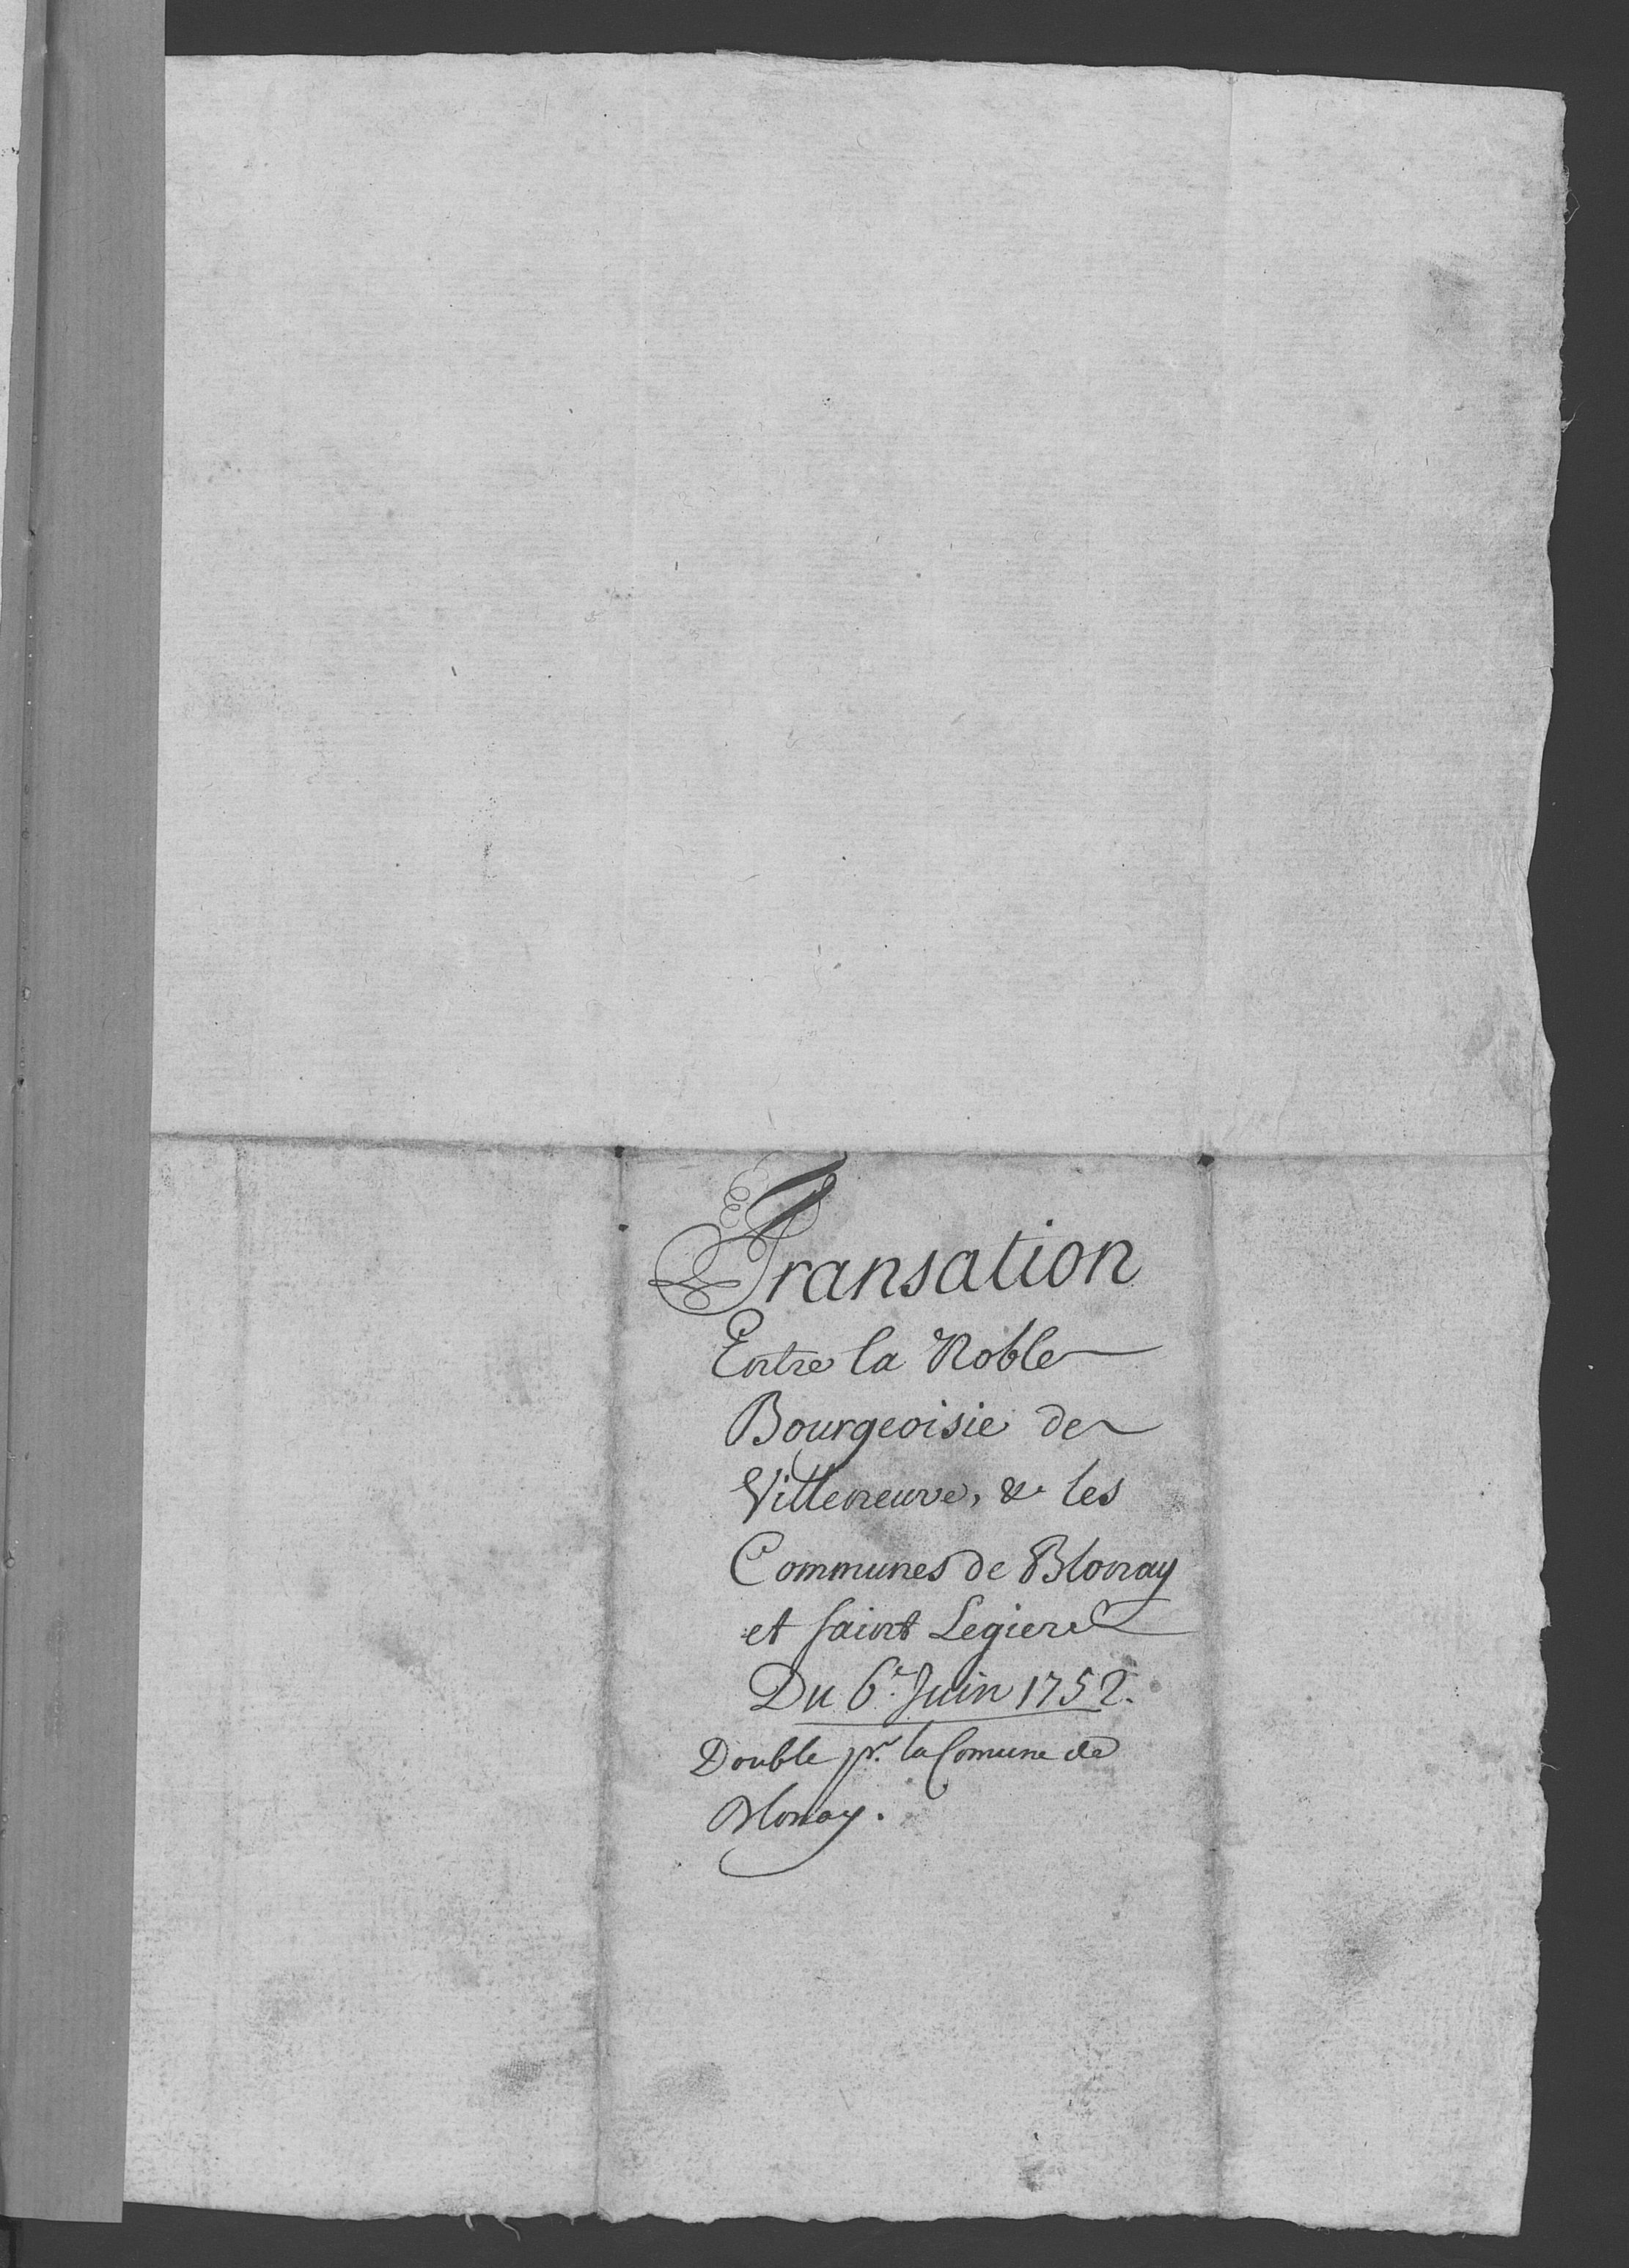 Transation
Entre la Noble
Bourgeoisie de
Villeneuve, & les
Communes de Blonay
et saint Legier
Du 6.e Juin 1752.
Double pr. la Comune de
Blonay.